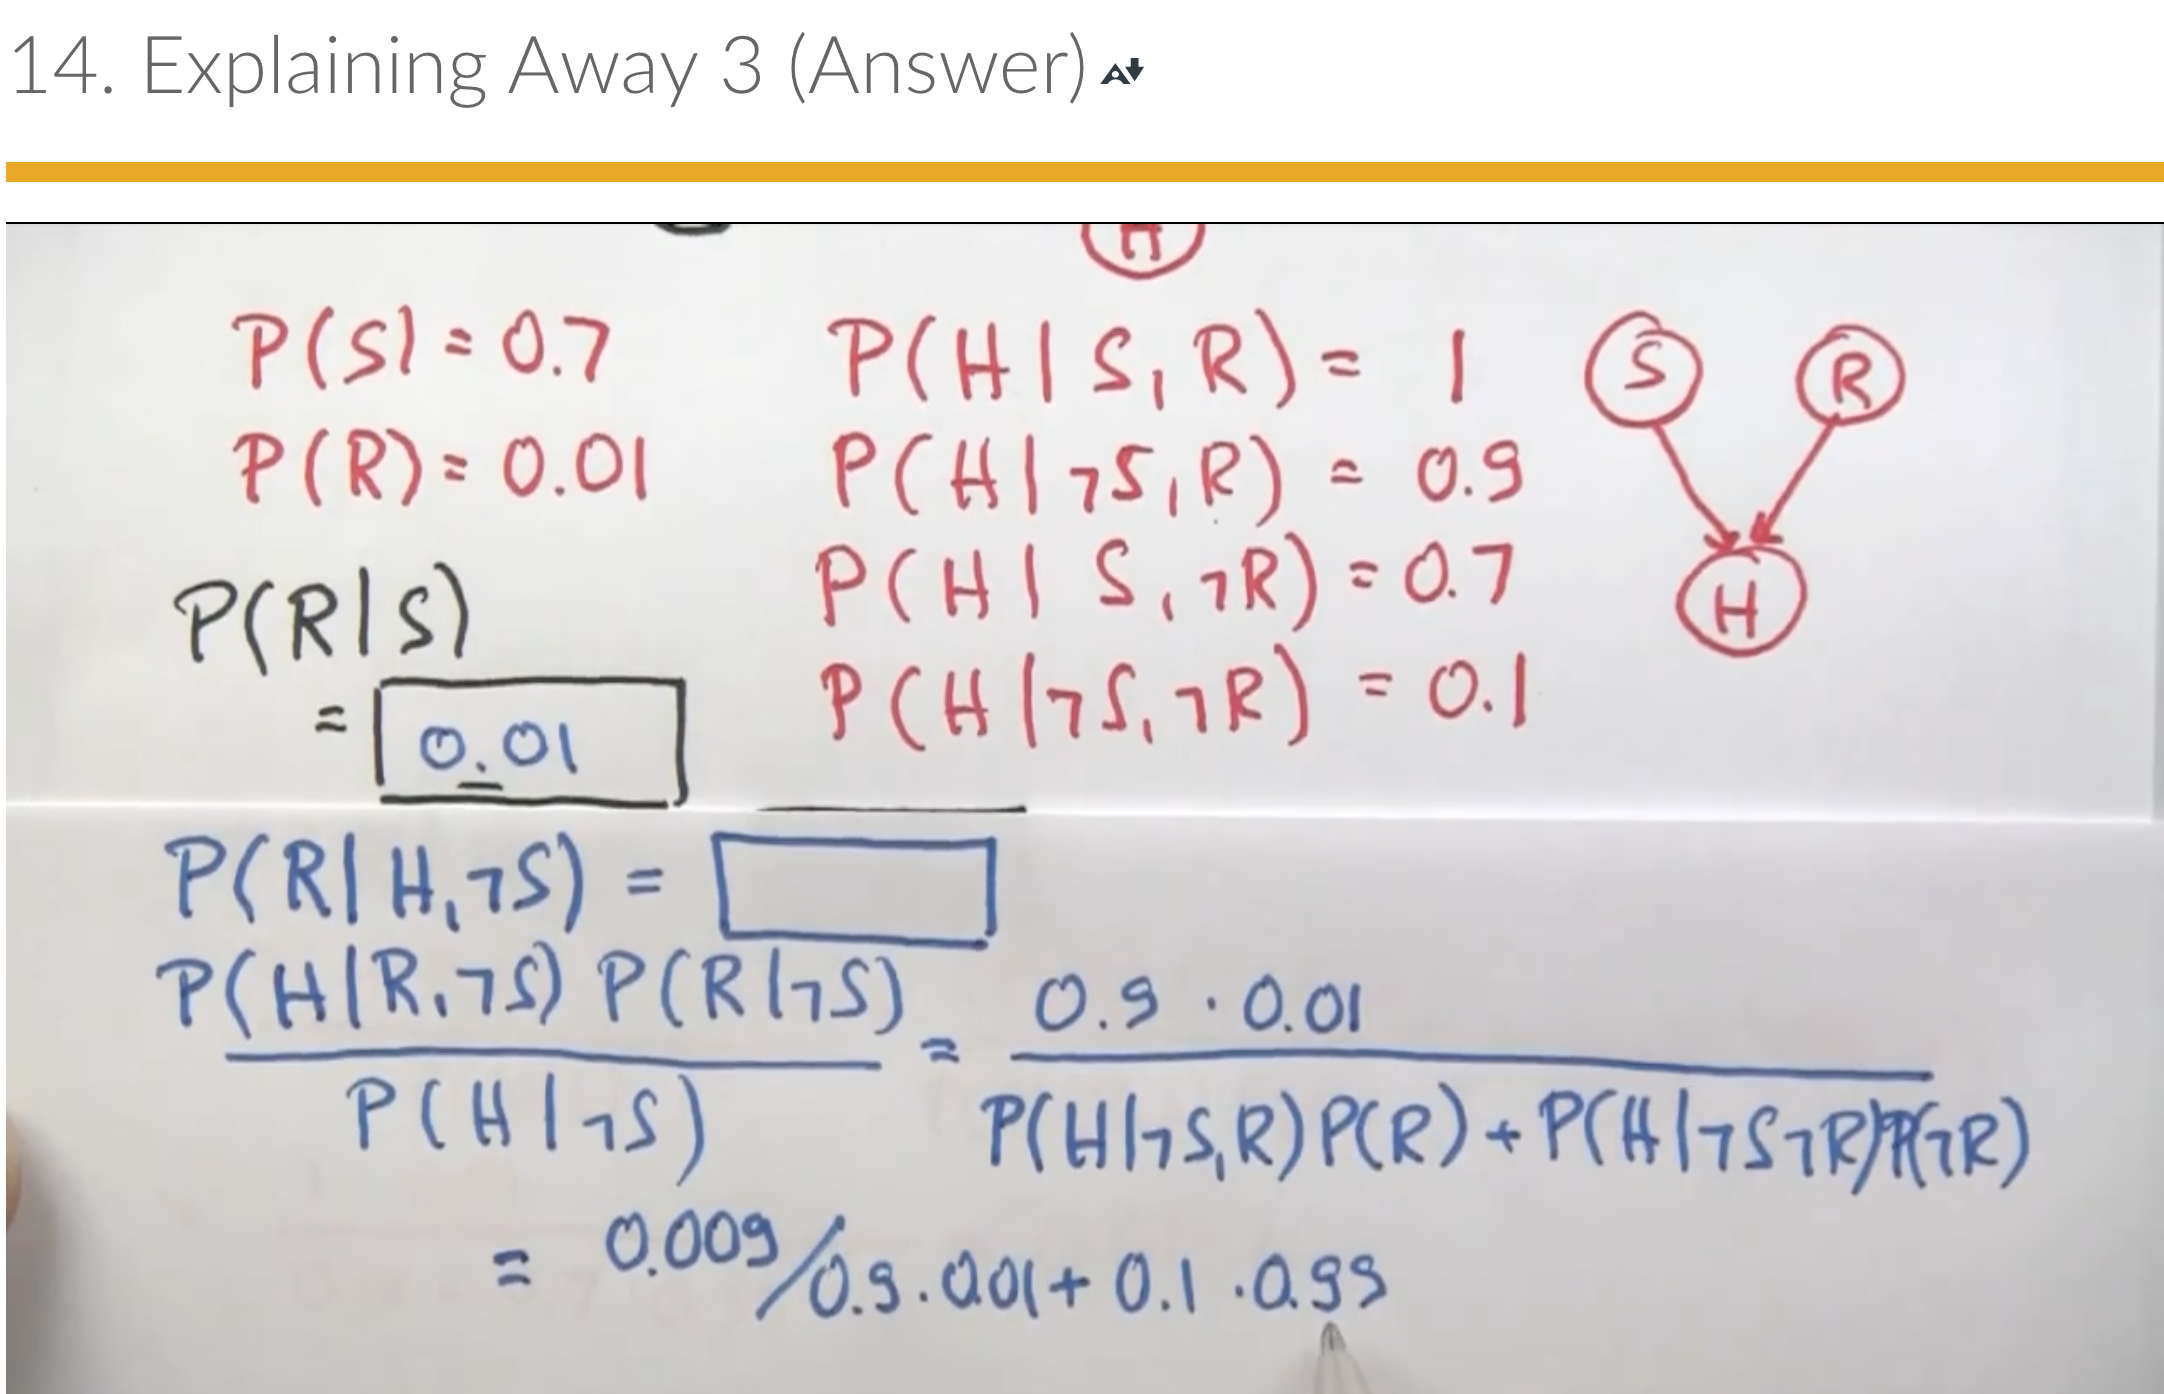 14. Explaining Away 3 (Answer)
H
P(S) = 0.7
P(R) = 0.01
P(H|S,R) = 1
P(H|¬S,R) = 0.9
P(H|S,¬R) = 0.7
P(H|¬S,¬R) = 0.1
S R
H
P(R|S)
= 0.01
P(R|H,¬S) =
P(H|R,¬S) P(R|¬S) = 0.9 · 0.01
P(H|¬S) P(H|¬S,R)P(R) + P(H|¬S¬R)P(¬R)
= 0.009/0.9·0.01 + 0.1·0.99